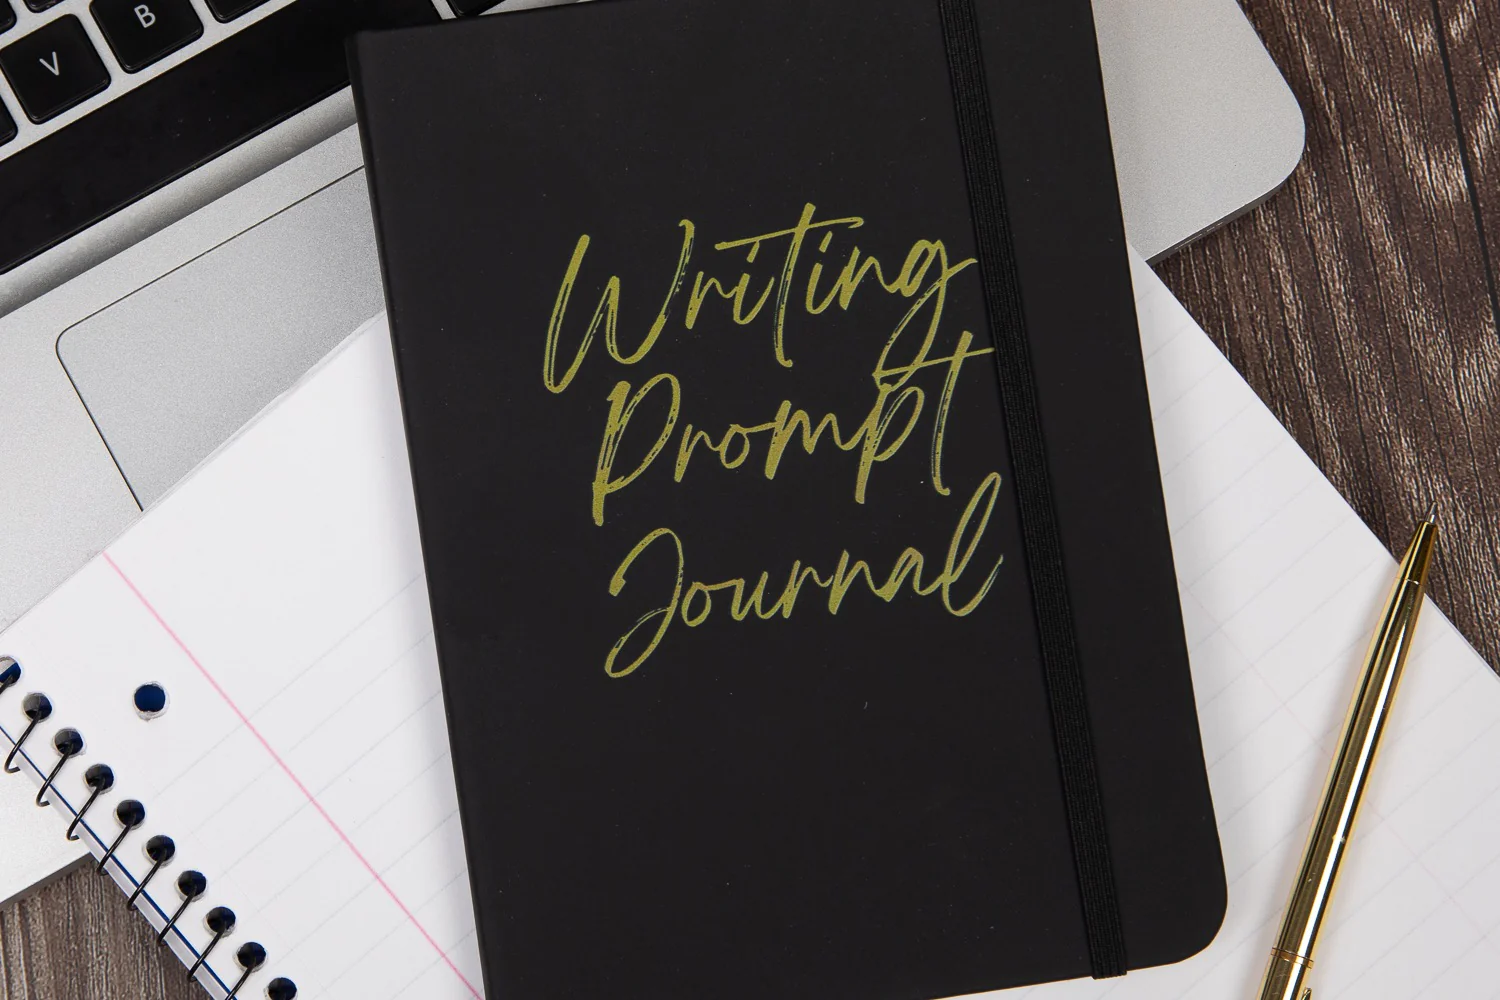 B
V
Writing
Prompt
Journal